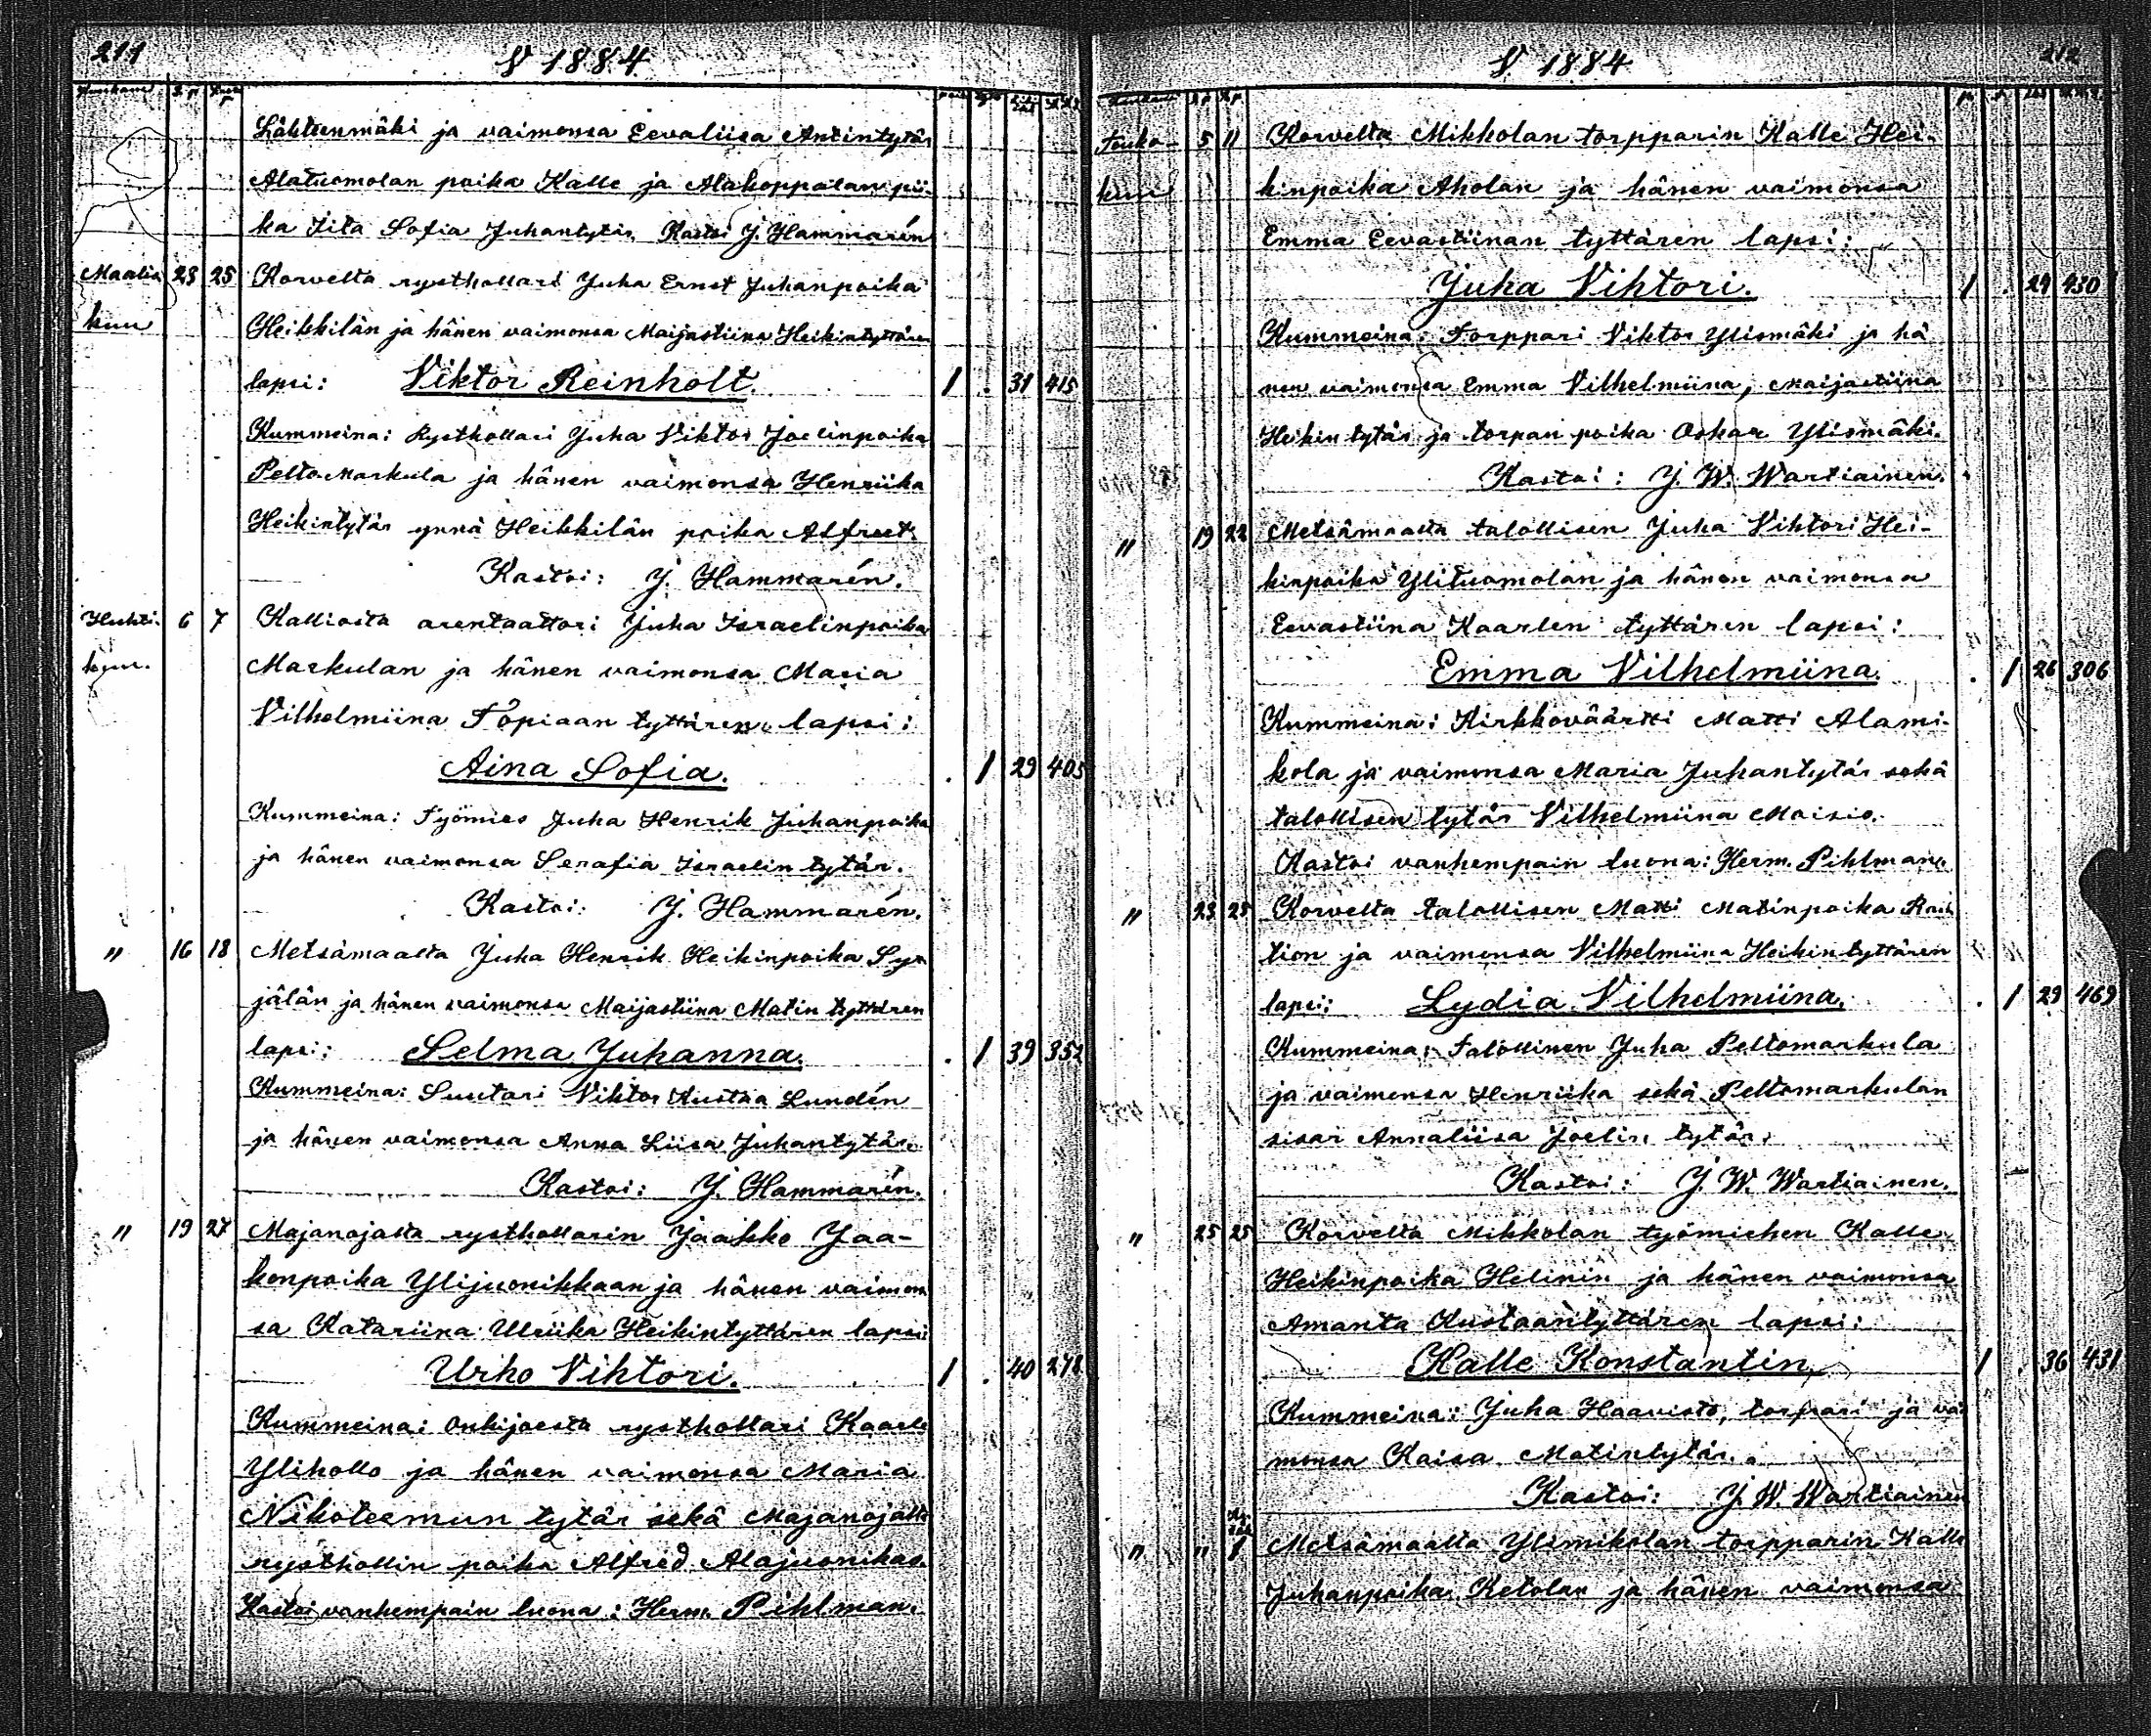 211
V 1884
Kuukausi S.p. Kaste p.
Lähteenmäki ja vaimonsa Eevaliisa Antintytär
Alatuomolan poika Kalle ja Alakoppalan pii-
ka Iita Sofia Juhantytär. Kastoi J. Hammarén
Maalis 23 25 Korvelta rysthollari Juha Ernst Juhanpoika
kuu Heikkilän ja hänen vaimonsa Maijastiina Heikintyttären
lapsi: Viktor Reinholt. 1 . 31 415
Kummeina: Rysthollari Juha Viktor Joelinpoika
Pelto-Markula ja hänen vaimonsa Henriika
Heikintytär ynnä Heikkilän poika Alfreet.
Kastoi: J. Hammarén.
Huhti- 6 7 Kalliosta arentaattori Juha Israelinpoika
kuu. Markulan ja hänen vaimonsa Maria
Vilhelmiina Topiaan tyttären lapsi:
Aina Sofia. . 1 29 405
Kummeina: Työmies Juha Henrik Juhanpoika
ja hänen vaimonsa Serafia Israelin tytär.
Kastoi: J. Hammarén.
" 16 18 Metsämaalta Juha Henrik Heikinpoika Syr
jälän ja hänen vaimonsa Maijastiina Matin tyttären
lapsi: Selma Juhanna. . 1 39 352
Kummeina: Suutari Viktor Kustaa Lundén
ja hänen vaimonsa Anna Liisa Juhantytär.
Kastoi: J. Hammarén.
" 19 27 Majanojalta rysthollarin Jaakko Jaa-
konpoika Ylijuonikkaan ja hänen vaimon
sa Katariina Ulriika Heikintyttären lapsi
Urho Vihtori. 1 . 40 278
Kummeina: Onkijoesta rysthollari Kaarle
Ylihollo ja hänen vaimonsa Maria
Nikoteemun tytär sekä Majanojalta
rysthollin poika Alfred Alajuonikas.
Kastoi vanhempain luona: Herm. Pihlman.
V 1884
212
Touko- 5 11 Korvelta Mikkolan torpparin Kalle Hei-
kuu kinpoika Aholan ja hänen vaimonsa
Emma Eevastiinan tyttären lapsi:
Juha Vihtori. 1 . 29 430
Kummeina: Torppari Viktor Ylismäki ja hä
nen vaimonsa Emma Vilhelmiina, Maijastiina
Heikin tytär ja torpan poika Oskar Ylismäki.
Kastoi: J. W. Wartiainen.
" 19 22 Metsämaalta talollisen Juha Vihtori Hei-
kinpoika Ylituomolan ja hänen vaimonsa
Eevastiina Kaarlen tyttären lapsi:
Emma Vilhelmiina. . 1 26 306
Kummeina: Kirkkoväärtti Matti Alami-
kola ja vaimonsa Maria Juhantytär sekä
talollisen tytär Vilhelmiina Maisio.
Kastoi vanhempain luona: Herm. Pihlman.
" 23 25 Korvelta talollisen Matti Matinpoika
tion ja vaimonsa Vilhelmiina Heikintyttären
lapsi: Lydia Vilhelmiina. . 1 29 469
Kummeina: Talollinen Juha Peltomarkula
ja vaimonsa Henriika sekä Peltomarkulan
sisar Annaliisa Joelin tytär.
Kastoi: J. W. Wartiainen.
" 25 25 Korvelta Mikkolan työmiehen Kalle
Heikinpoika Helinin ja hänen vaimonsa
Amanta Kustaantyttären lapsi:
Kalle Konstantin, 1 . 36 431
Kummeina: Juha Haavisto, torpari ja vai
monsa Kaisa Matintytär.
Kastoi: J. W. Wartiainen
" " 1 Metsämaalta Ylimikolan torpparin Kalle
Juhanpoika Ketolan ja hänen vaimonsa